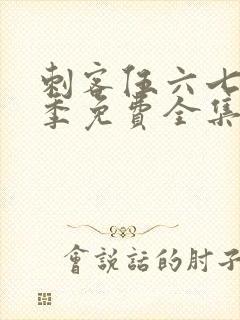 刺客伍六七
季免費全集
會說話的肘子